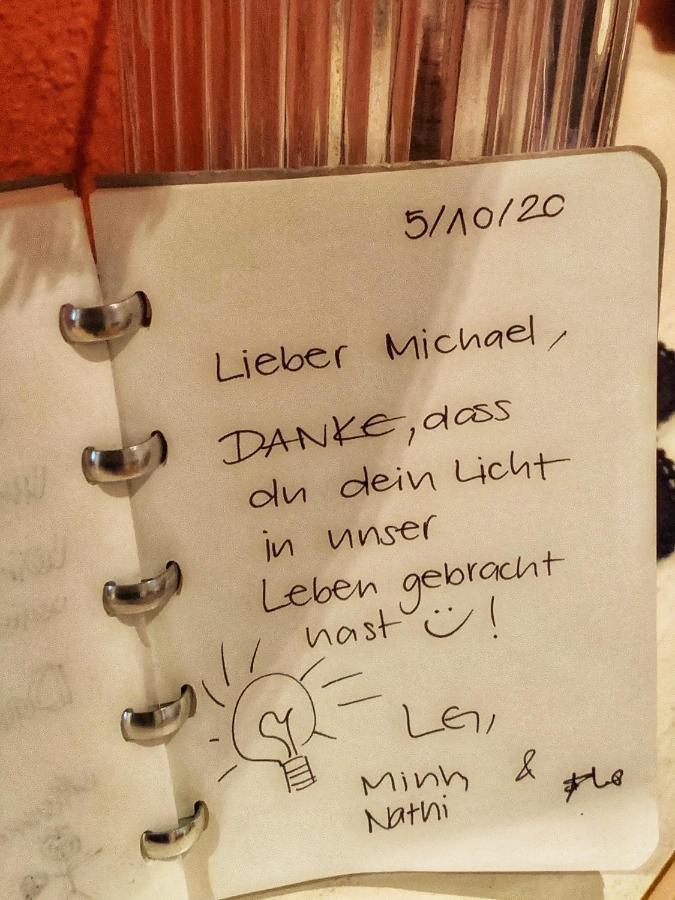 5/10/20
Lieber Michael,
DANKE, dass
du dein Licht
in unser
Leben gebracht
hast ü!
LG,
Minh &
Nathi